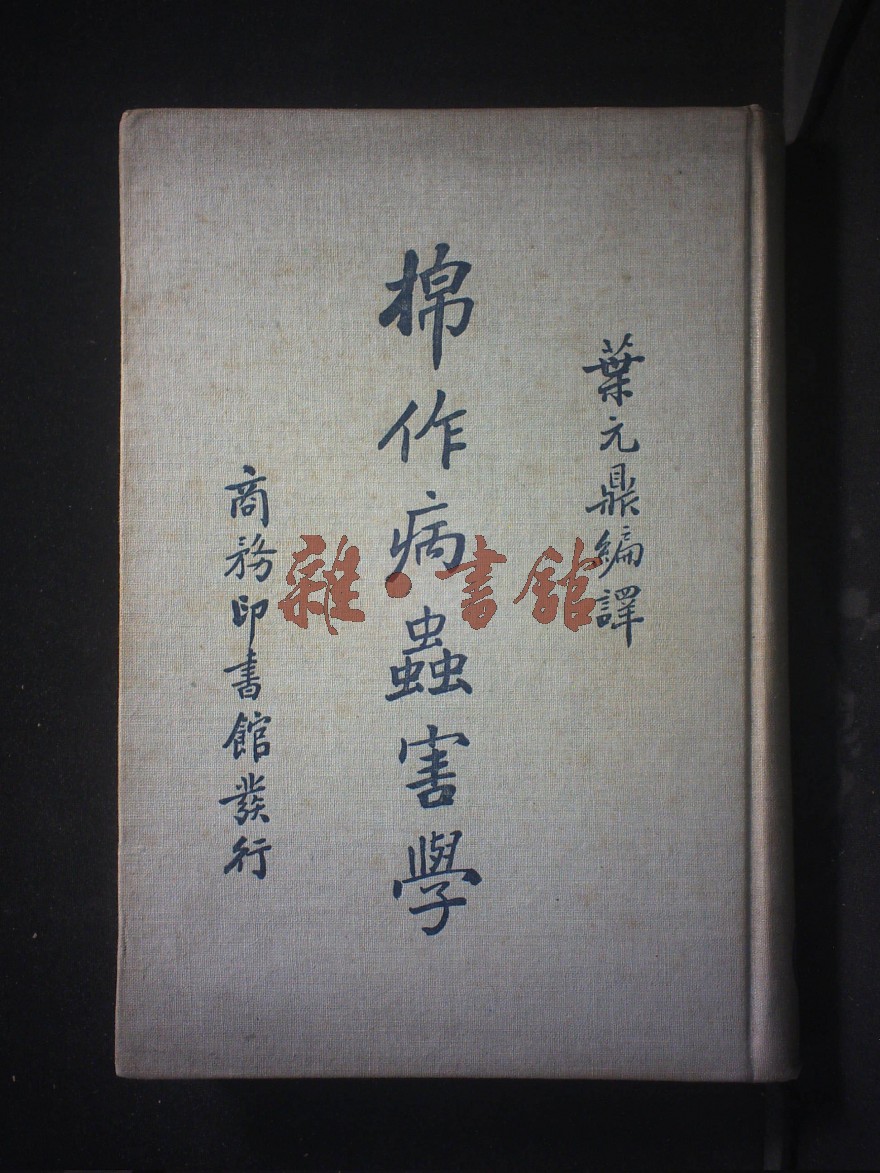 葉元鼎編譯
棉作病蟲害學
商務印書館發行
雜·書館